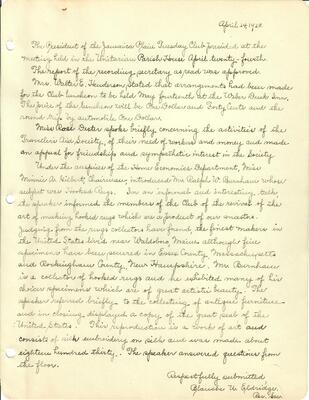 April 24, 1928.
The President of the Jamaica Plain Tuesday Club presided at the
meeting held in the Unitarian Parish House April twenty-fourth.
The report of the recording secretary as read was approved.
Mrs. Walter E. Henderson stated that arrangements had been made
for the Club luncheon to be held May fourteenth at the Weber Duck Inn.
The price of the luncheon will be One Dollar and Forty Cents and the
round trip by automobile One Dollar.
Miss Rose spoke briefly concerning the activities of the
Travelers Aid Society, of their need of workers and money and made
an appeal for friendship and sympathetic interest in the Society.
Under the auspices of the Home Economics Department, Miss
Minnie A. Chairman, introduced Mr. Ralph W. Burnham whose
subject was Hooked Rugs. In an informal and interesting talk
the speaker informed the members of the Club of the revival of the
art of making hooked rugs which are a product of our ancestors.
Judging from the rugs collectors have found, the finest makers in
the United States lived near Waldoboro, Maine although fine
specimens have been secured in Essex County, Massachusetts
and Rockingham County, New Hampshire. Mr. Burnham
is a collector of hooked rugs and he exhibited many of his
choice specimens which are of great artistic beauty. The
speaker referred briefly to the collecting of antique furniture
and in closing displayed a copy of the great seal of the
United States. This reproduction is a work of art and
consists of silk embroidery on silk and was made about
eighteen hundred thirty. The speaker answered questions from
the floor.
Respectfully submitted
W. Eldridge.
Rec. Sec.